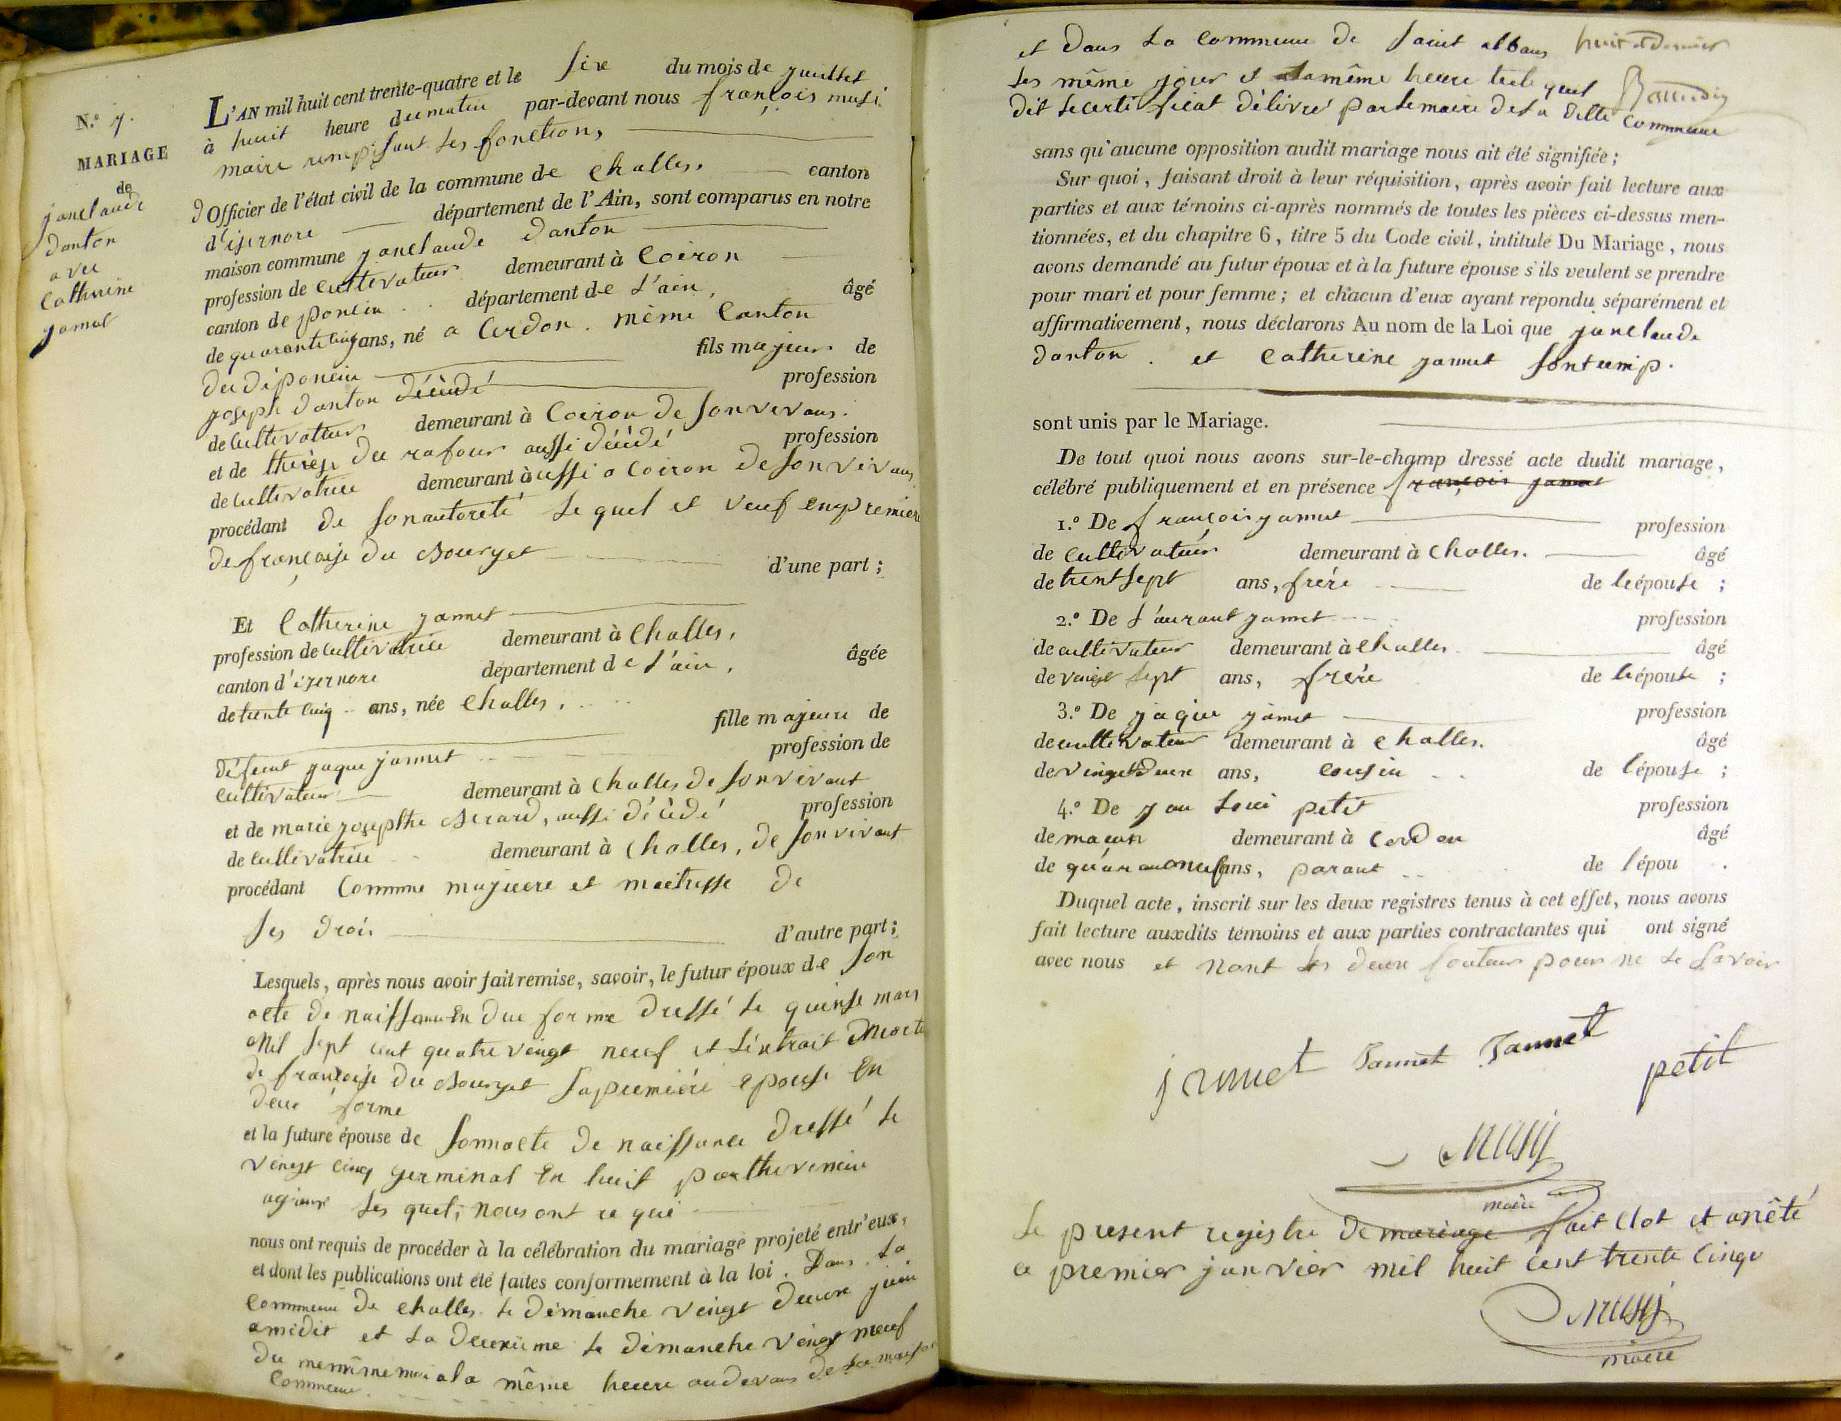 N.º 7.
MARIAGE
de
janclaude
danton
avec
Catherine
jannet
L'AN mil huit cent trente-quatre et le six du mois de juillet
à huit heure du matin par-devant nous françois musi
maire remplisant les fonctions
d'Officier de l'état civil de la commune de Challes. canton
d'isernore département de l'Ain, sont comparus en notre
maison commune janclaude danton
profession de cultivateur demeurant à Coiron
canton de poncin département de l'ain, âgé
de quarante cinq ans, né a Cerdon. même Canton
du dé poncin fils majeur de
joseph danton décédé profession
de cultivateur demeurant à Coiron de son vivans.
et de thérèse du rafour aussi décédé profession
de cultivatrice demeurant à aussi a Coiron de son vivans
procédant de son autoreté le quel et veuf en premiere
de françoise du Bourget d'une part ;
Et Catherine jannet
profession de cultivatrice demeurant à Challes,
canton d'izernore département de l'ain, âgée
de trente cinq ans, née Challes,
fille majeure de
défeunt jaque jannet profession de
cultivateur demeurant à Challes de son vivant
et de marie josephte Berard, aussi décédé profession
de cultivatrice demeurant à Challes, de son vivant
procédant Comme majeure et maitresse de
ses drois d'autre part ;
Lesquels, après nous avoir fait remise, savoir, le futur époux de son
acte de naissance En due forme dressé le quinse mars
Mil sept cent quatre vingt neuf et l'extrait Mortu
de françoise du Bourget sa premiére Epouse En
deue forme
et la future épouse de son acte de naissance dressé le
vingt cinq germinal En huit par thevenin
agiont les quels nous ont re qui
nous ont requis de procéder à la célébration du mariage projeté entr'eux,
et dont les publications ont été faites conformement à la loi. Dans la
Commeune de Challes le dimanche vingt deux juin
amidit et la deuxiime le dimanche vingt neuf
du memme moi a la même heure au devans de la maison
Commeune
et dans la Commeune de saint alban
les même jour et la même heure tiels quil
dit le certificat délivré par le maire de la ditte Commeune
sans qu'aucune opposition audit mariage nous ait été signifiée ;
Sur quoi, faisant droit à leur réquisition, après avoir fait lecture aux
parties et aux témoins ci-après nommés de toutes les pièces ci-dessus men-
tionnées, et du chapitre 6, titre 5 du Code civil, intitulé Du Mariage, nous
avons demandé au futur époux et à la future épouse s'ils veulent se prendre
pour mari et pour femme ; et chacun d'eux ayant répondu séparément et
affirmativement, nous déclarons Au nom de la Loi que janclaude
danton. et Catherine jannet sont unip.
sont unis par le Mariage.
De tout quoi nous avons sur-le-champ dressé acte dudit mariage,
célébré publiquement et en présence françois jannet
1.º De françois jannet profession
de cultivateur demeurant à Challes. âgé
de trent sept ans, frére de lépouse ;
2.º De l'aurant jannet profession
de cultivateur demeurant à Challes. âgé
de vingt sept ans, frére de lépouse ;
3.º De jaque jannet profession
de cultivateur demeurant à Challes. âgé
de vingt deux ans, cousin de lépouse ;
4.º De jan loui petit profession
de maçun demeurant à Cerdon âgé
de quaranteneuf ans, parant de lépou .
Duquel acte, inscrit sur les deux registres tenus à cet effet, nous avons
fait lecture auxdits témoins et aux parties contractantes qui ont signé
avec nous et nont les deux fouteurs pour ne le savoir
jannet Jannet Jannet petit
Musy
maire
Le present registre de mariage fait Clot et arrêté
ce premier janvier mil huit cent trente Cinqu
Musy
maire